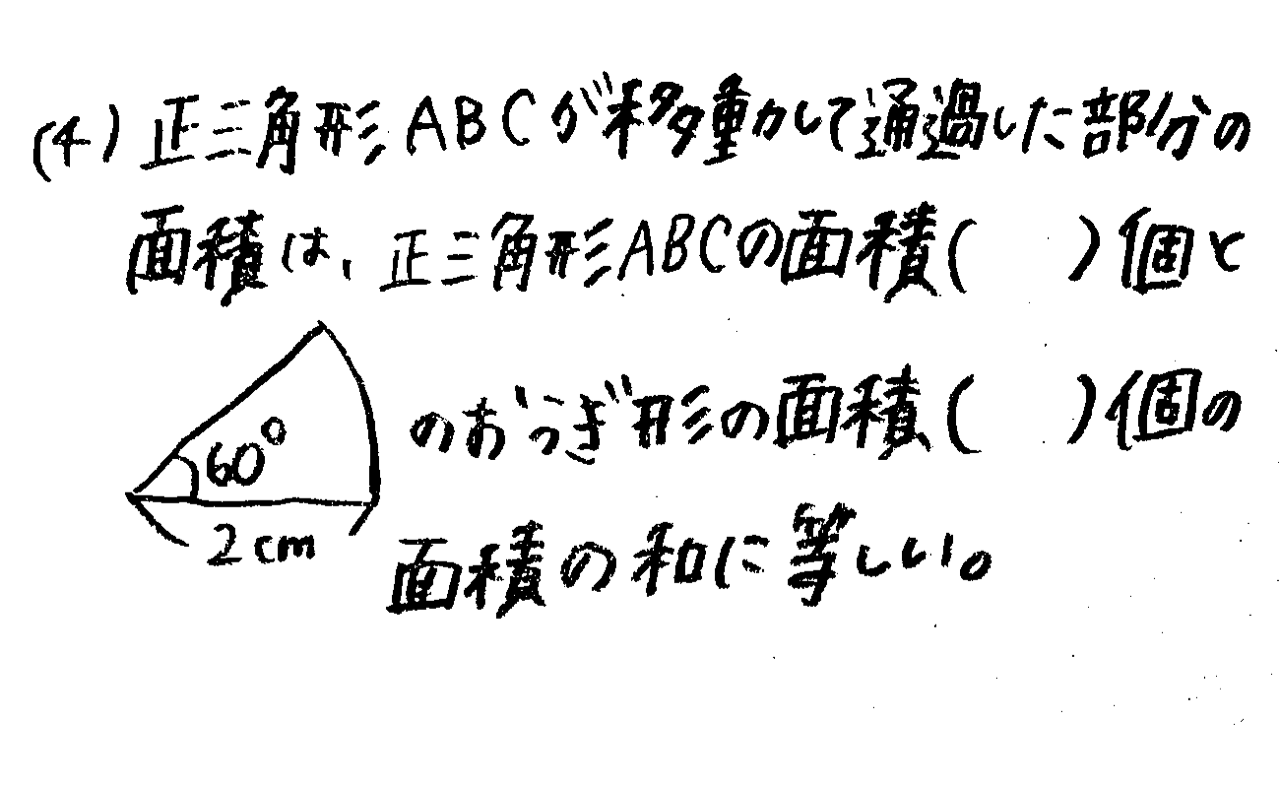 (4) 正三角形ABCが移動して通過した部分の
面積は、正三角形ABCの面積(　　)個と
60°
2cm
のおうぎ形の面積(　　)個の
面積の和に等しい。